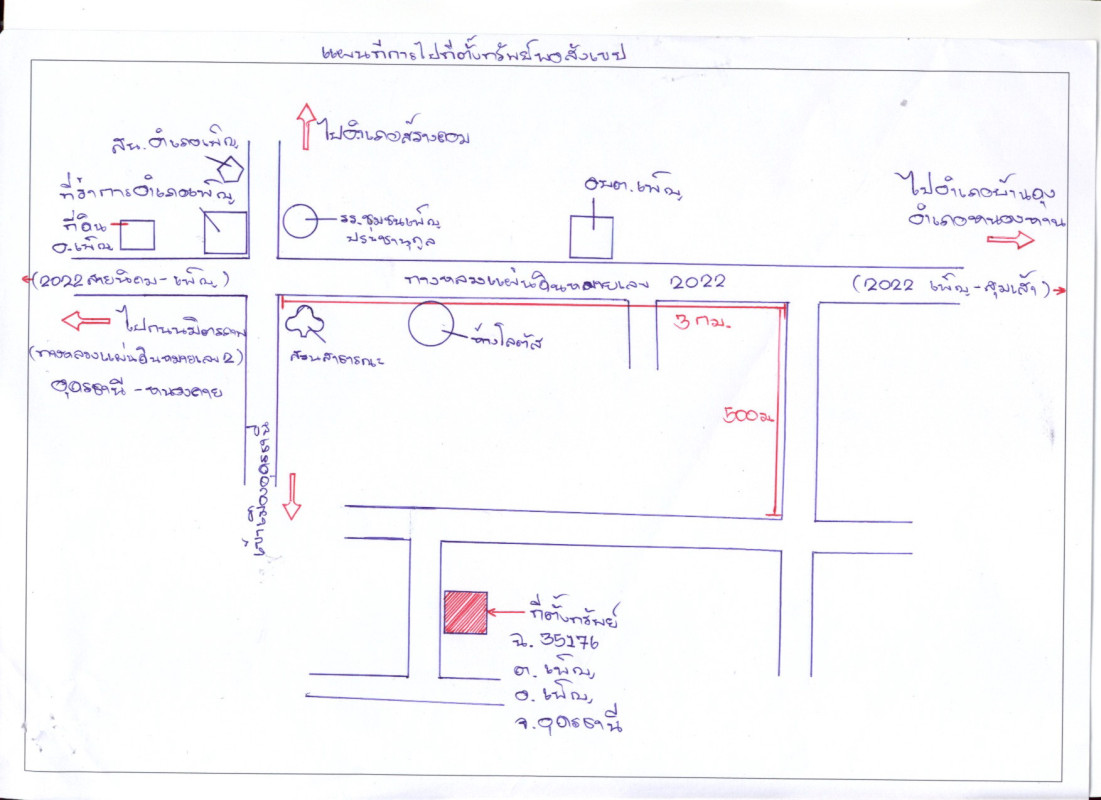 แผนที่การไปที่ตั้งทรัพย์พอสังเขป
ไปอำเภอสร้างคอม
สน.อำเภอเพ็ญ
ที่ว่าการอำเภอเพ็ญ
ที่ดิน
อ.เพ็ญ
รร.ชุมชนเพ็ญ
ประชานุกูล
อบต.เพ็ญ
ไปอำเภอบ้านดุง
อำเภอหนองหาน
(2022 สายนิคม-เพ็ญ)
ทางหลวงแผ่นดินหมายเลข 2022
(2022 เพ็ญ-สุมเส้า)
ไปถนนมิตรภาพ
(ทางหลวงแผ่นดินหมายเลข 2)
อุดรธานี - หนองคาย
สวนสาธารณะ
ห้างโลตัส
3 กม.
500 ม.
เข้าเมืองอุดรธานี
ที่ตั้งทรัพย์
ฉ. 35176
ต. เพ็ญ
อ. เพ็ญ
จ. อุดรธานี